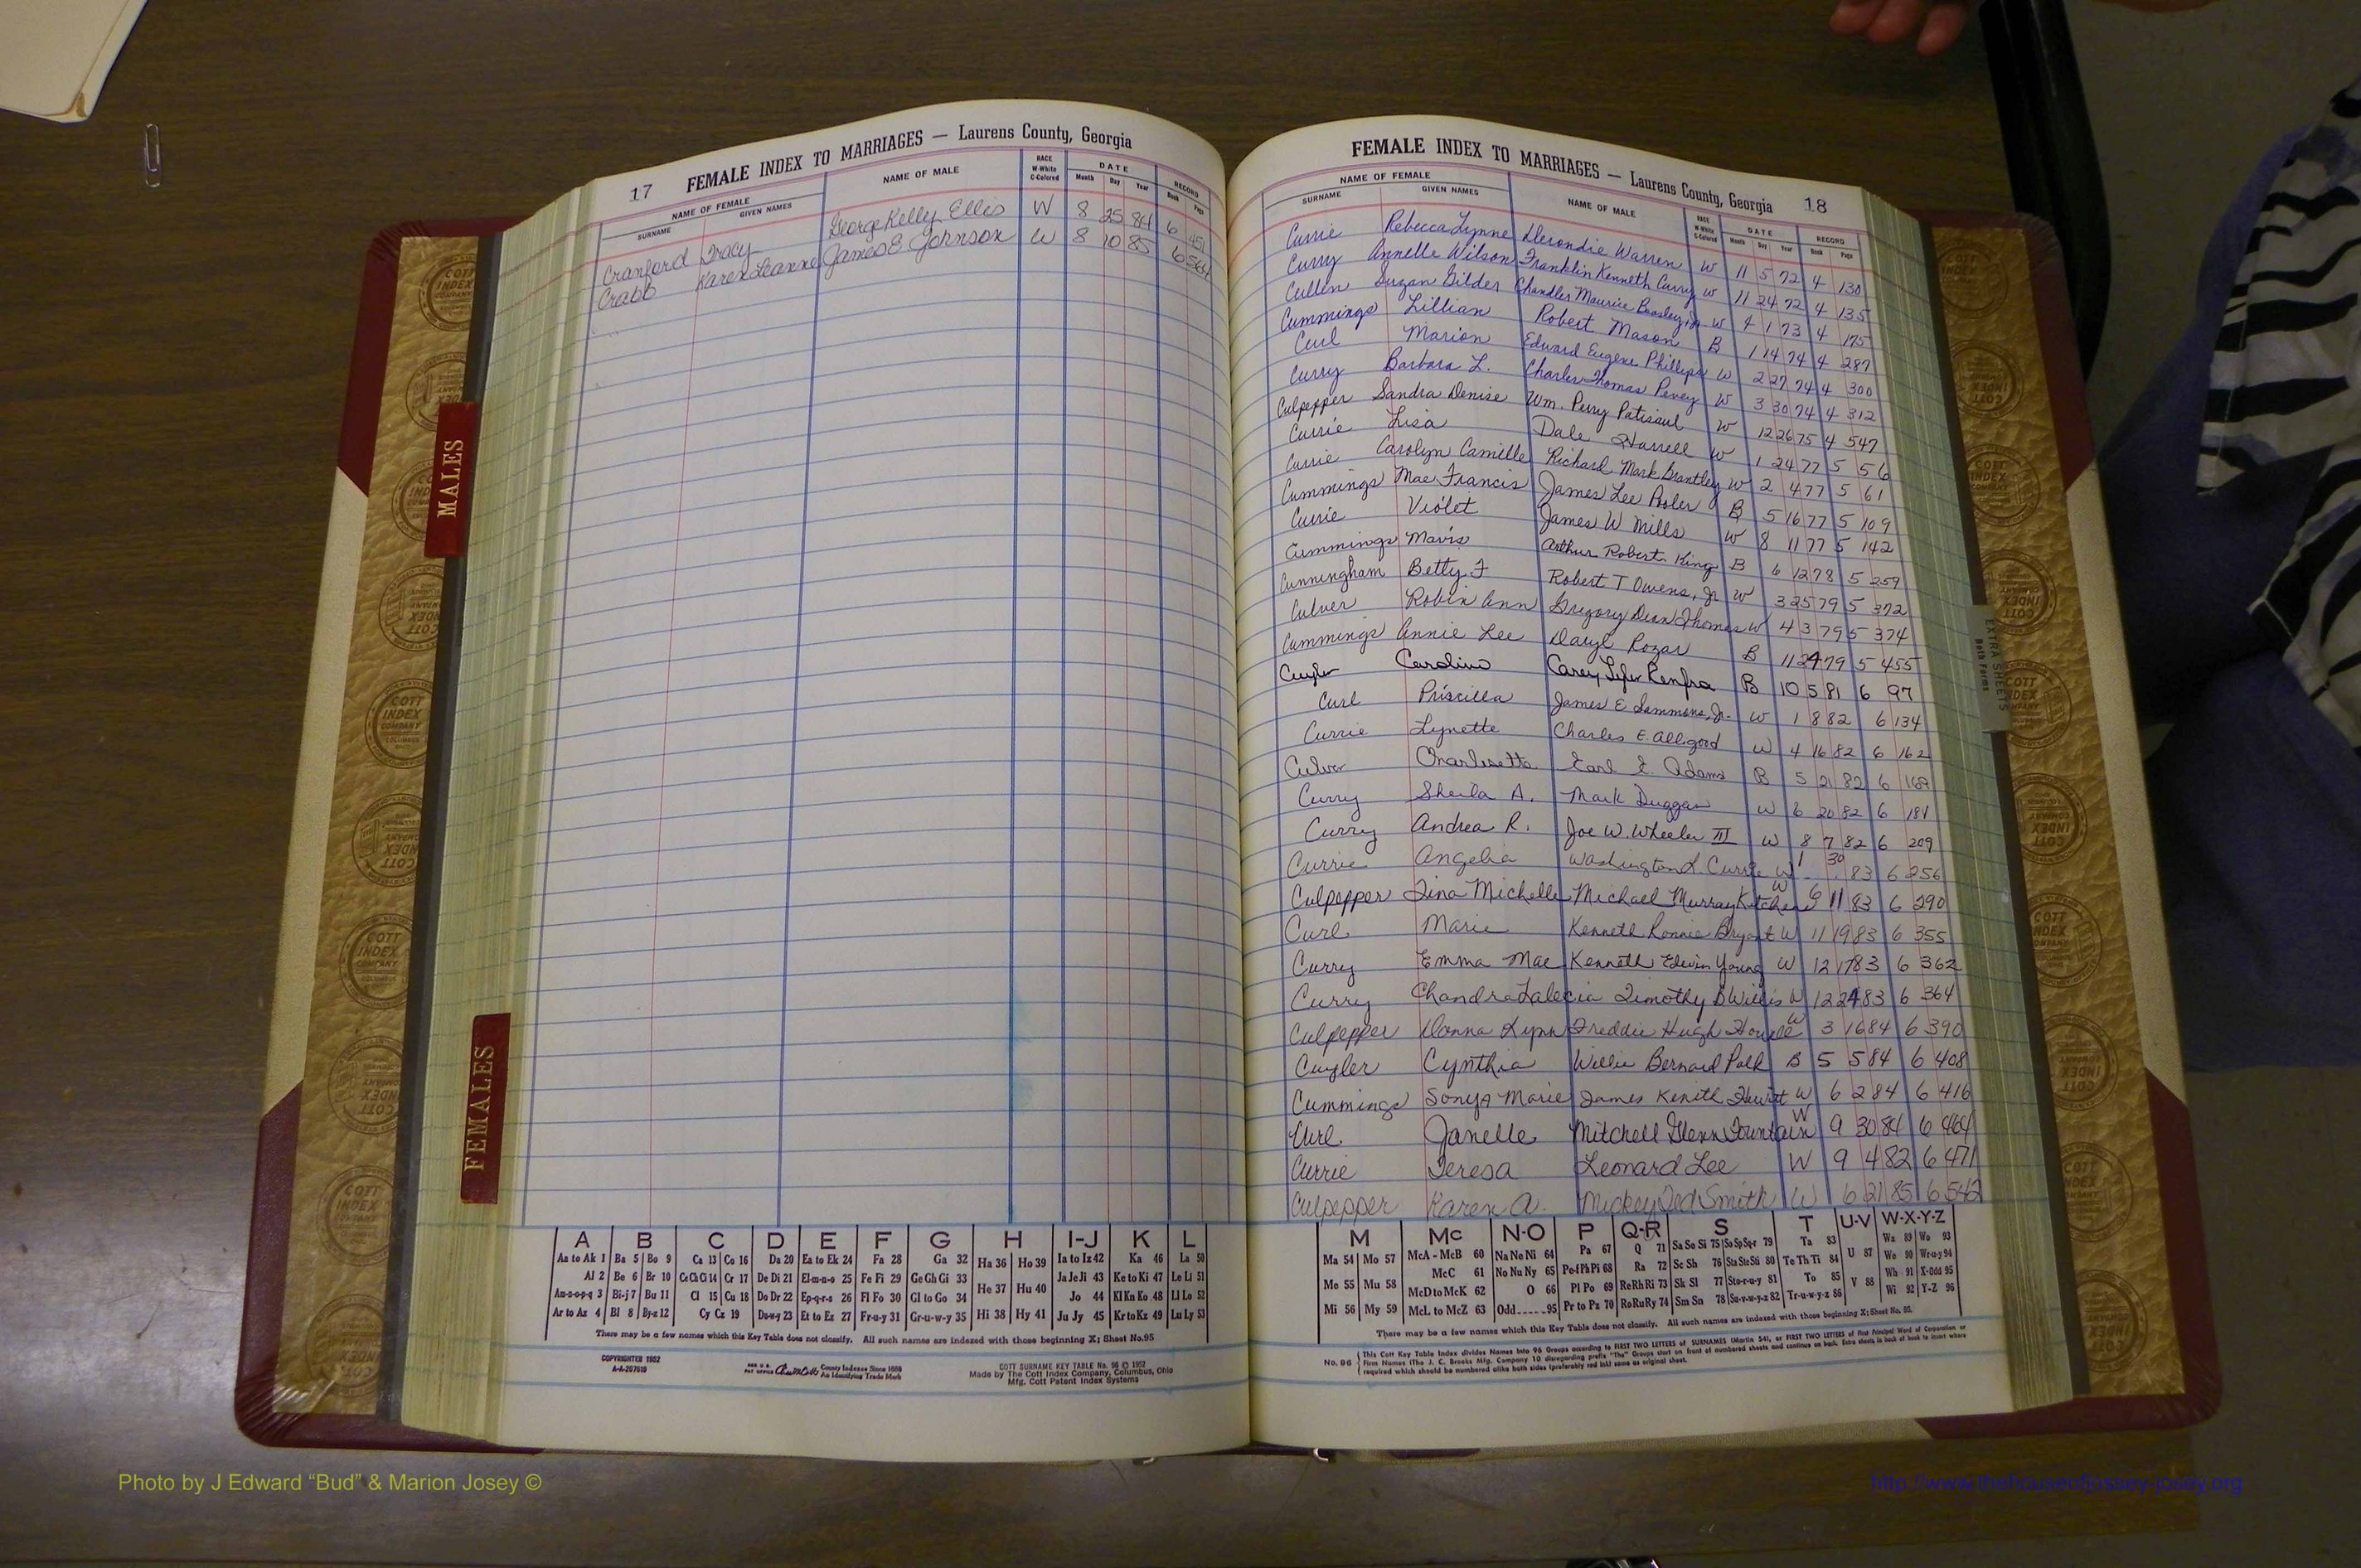 17 FEMALE INDEX TO MARRIAGES — Laurens County, Georgia
NAME OF FEMALE NAME OF MALE RACE W-White C-Colored DATE RECORD
SURNAME GIVEN NAMES Month Day Year Book Page
Cranford Tracy George Kelly Ellis W 8 25 84 6 451
Crabb Karen Leanne James E Johnson W 8 10 85 6 564
MALES
FEMALES
A B C D E F G H I-J K L
Aa to Ak 1 Ba 5 Bo 9 Ca 13 Co 16 Da 20 Ea to Ek 24 Fa 28 Ga 32 Ha 36 Ho 39 Ia to Iz 42 Ka 46 La 50
Al 2 Be 6 Br 10 Ce Ch Ci 14 Cr 17 De Di 21 El-m-n-o 25 Fe Fi 29 Ge Gh Gi 33 He 37 Hu 40 Ja Je Ji 43 Ke to Ki 47 Le Li 51
Am-n-o-p-q 3 Bi-j 7 Bu 11 Cl 15 Cu 18 Do Dr 22 Ep-q-r-s 26 Fl Fo 30 Gl to Go 34 Jo 44 Kl Kn Ko 48 Ll Lo 52
Ar to Az 4 Bl 8 By-z 12 Cy Cz 19 Du-w-y 23 Et to Ez 27 Fr-u-y 31 Gr-u-w-y 35 Hi 38 Hy 41 Ju Jy 45 Kr to Kz 49 Lu Ly 53
There may be a few names which this Key Table does not classify. All such names are indexed with those beginning X; Sheet No. 95
COPYRIGHTED 1952
A-A-207619
REG. U.S. PAT OFFICE County Indexes Since 1888
An Identifying Trade Mark
COTT SURNAME KEY TABLE No. 96 © 1952
Made by The Cott Index Company, Columbus, Ohio
Mfg. Cott Patent Index Systems
FEMALE INDEX TO MARRIAGES — Laurens County, Georgia 18
NAME OF FEMALE NAME OF MALE RACE W-White C-Colored DATE RECORD
SURNAME GIVEN NAMES Month Day Year Book Page
Currie Rebecca Lynne Derondie Warren W 11 5 72 4 130
Curry Annelle Wilson Franklin Kenneth Curry W 11 24 72 4 135
Cullen Suzan Gilder Chandler Maurice Beasley, Jr. W 4 1 73 4 175
Cummings Lillian Robert Mason B 1 14 74 4 287
Curl Marion Edward Eugene Phillips W 2 27 74 4 300
Curry Barbara L. Charles Thomas Pevey W 3 30 74 4 312
Culpepper Sandra Denise Wm. Perry Patisaul W 12 26 75 4 547
Currie Lisa Dale Harrell W 1 24 77 5 56
Currie Carolyn Camille Richard Mark Brantley W 2 4 77 5 61
Cummings Mae Francis James Lee Posler B 5 16 77 5 109
Currie Violet James W Mills W 8 11 77 5 142
Cummings Mavis Arthur Robert King B 6 12 78 5 259
Cunningham Betty F Robert T Owens, Jr W 3 25 79 5 372
Culver Robin Ann Gregory Dean Thomas W 4 3 79 5 374
Cummings Annie Lee Daryl Rozar B 11 24 79 5 455
Cuyler Caroline Carey Tyler Renfro B 10 5 81 6 97
Curl Priscilla James E Sammons, Jr. W 1 8 82 6 134
Currie Lynette Charles E. Alligood W 4 16 82 6 162
Culver Charlesetta Earl E. Adams B 5 21 82 6 169
Curry Sheila A. Mark Duggan W 6 20 82 6 184
Curry Andrea R. Joe W. Wheeler III W 8 7 82 6 209
Currie Angelia Washington L. Currie W 1 30 83 6 256
Culpepper Tina Michelle Michael Murray Kitchens W 6 11 83 6 290
Curl Marie Kenneth Ronnie Bryant W 11 19 83 6 355
Curry Emma Mae Kenneth Edwin Young W 12 17 83 6 362
Curry Chandra Lalecia Timothy D Willis W 12 24 83 6 364
Culpepper Donna Lynn Freddie Hugh Howell W 3 16 84 6 390
Cuyler Cynthia Willie Bernard Polk B 5 5 84 6 408
Cummings Sonya Marie James Kenith Hewitt W 6 2 84 6 416
Curl Janelle Mitchell Glenn Fountain W 9 30 84 6 464
Currie Teresa Leonard Lee W 9 4 82 6 471
Culpepper Karen A. Mickey Ted Smith W 6 21 85 6 542
EXTRA SHEETS
Both Forms
M Mc N-O P Q-R S T U-V W-X-Y-Z
Ma 54 Mo 57 McA - McB 60 Na Ne Ni 64 Pa 67 Q 71 Sa Se Si 75 So Sp Sq-r 79 Ta 83 U 87 Wa 89 Wo 93
Me 55 Mu 58 McC 61 No Nu Ny 65 Pe-f Ph Pi 68 Ra 72 Sc Sh 76 Sta Ste Sti 80 Te Th Ti 84 We 90 Wr-u-y 94
McD to McK 62 O 66 Pl Po 69 Re Rh Ri 73 Sk Sl 77 Sto-r-u-y 81 To 85 V 88 Wh 91 X-Odd 95
Mi 56 My 59 McL to McZ 63 Odd 95 Pr to Pz 70 Ro Ru Ry 74 Sm Sn 78 Su-v-w-y-z 82 Tr-u-w-y-z 86 Wi 92 Y-Z 96
There may be a few names which this Key Table does not classify. All such names are indexed with those beginning X; Sheet No. 95.
No. 96 This Cott Key Table Index divides Names into 96 Groups according to FIRST TWO LETTERS of SURNAMES (Martin 54), or FIRST TWO LETTERS of First Principal Word of Corporation or
Firm Names (The J. C. Brooks Mfg. Company 10 disregarding prefix "The" Groups start on front of numbered sheets and continue on back. Extra sheets in back of book to insert where
required which should be numbered alike both sides (preferably red ink) same as original sheet.
Photo by J Edward “Bud” & Marion Josey ©
http://www.thehouseofjossey-josey.org